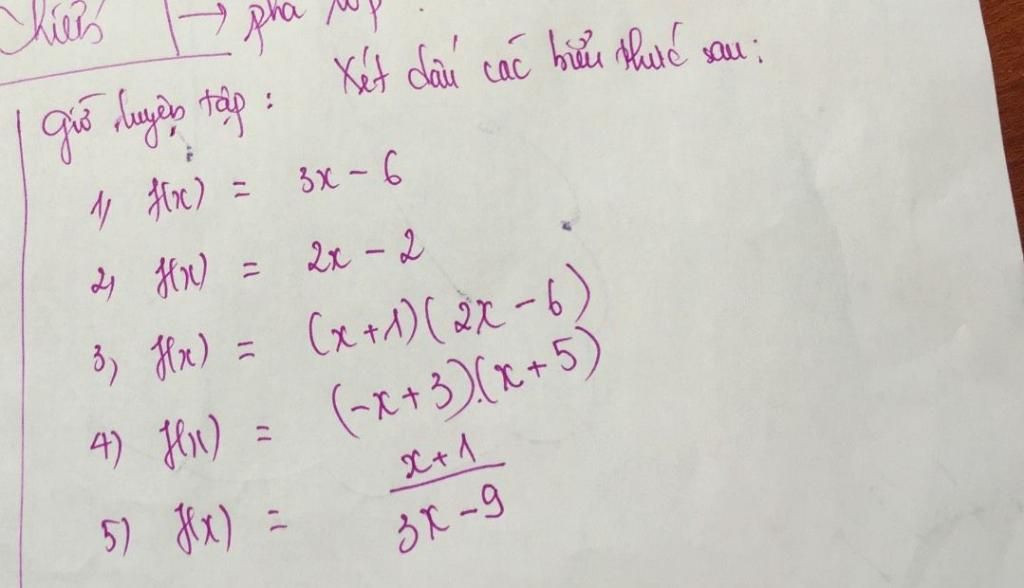 → pha
Xét dấu các biểu thức sau:
giờ luyện tập:
1) f(x) = 3x - 6
2) f(x) = 2x - 2
3) f(x) = (x+1)(2x-6)
4) f(x) = (-x+3).(x+5)
5) f(x) = \frac{x+1}{3x-9}